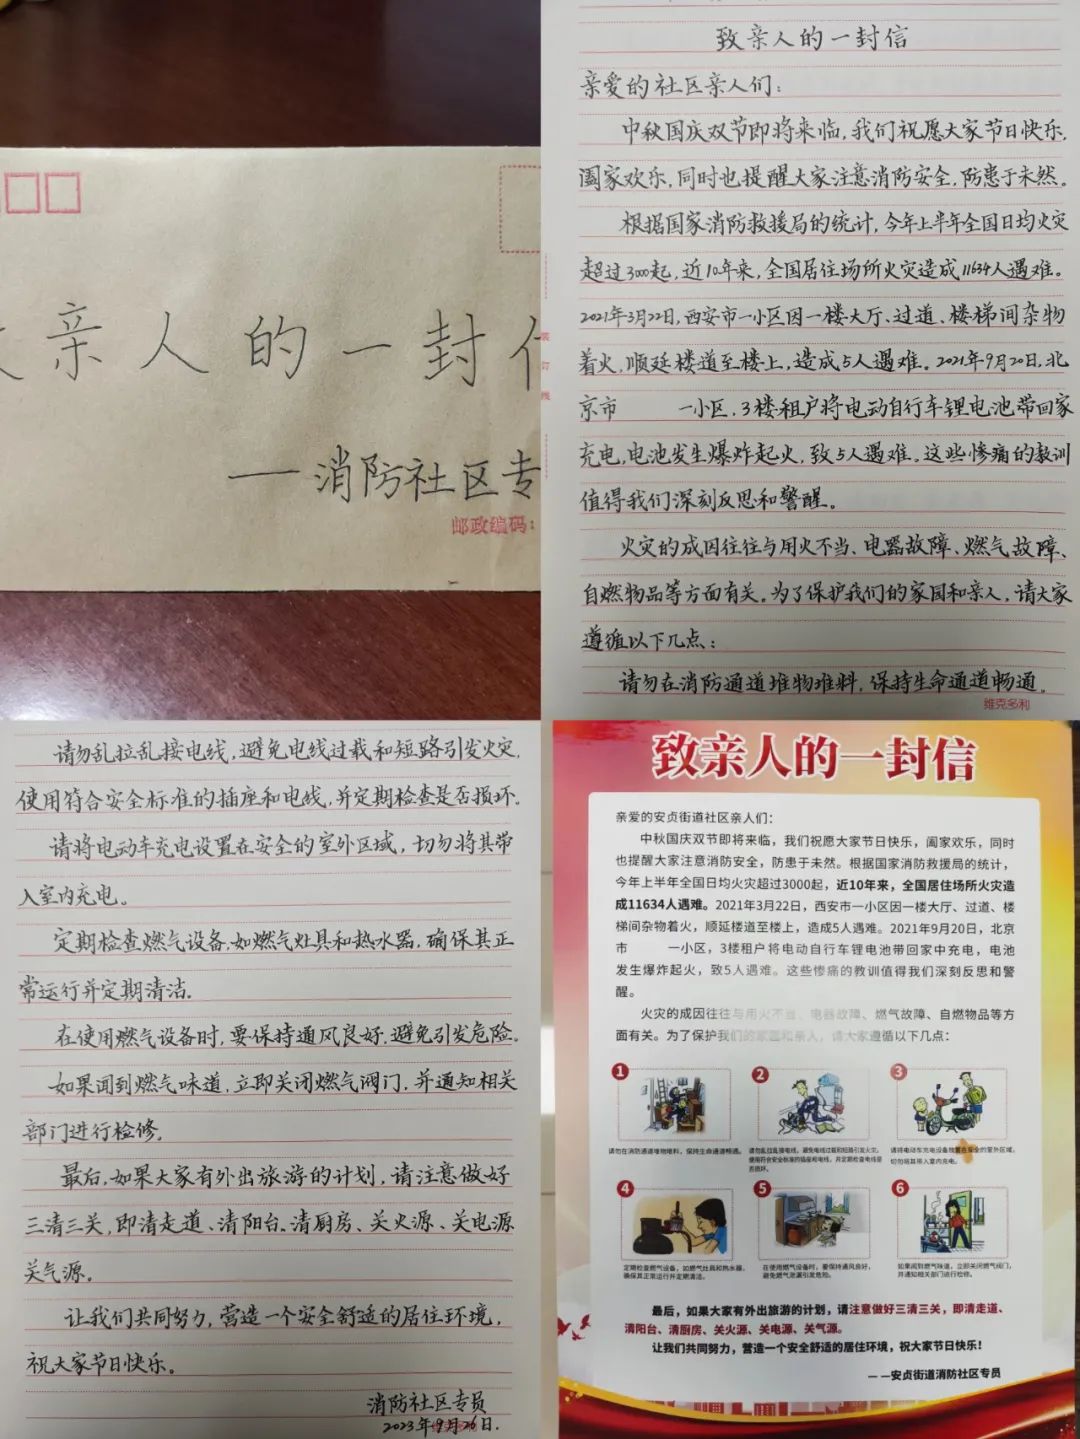 亲人的一封
——消防社区专
邮政编码：
装
订
线
致亲人的一封信
亲爱的社区亲人们：
中秋国庆双节即将来临，我们祝愿大家节日快乐，
阖家欢乐，同时也提醒大家注意消防安全，防患于未然。
根据国家消防救援局的统计，今年上半年全国日均火灾
超过3000起，近10年来，全国居住场所火灾造成11634人遇难。
2021年3月22日，西安市一小区因一楼大厅、过道、楼梯间杂物
着火，顺延楼道至楼上，造成5人遇难。2021年9月20日，北
京市 一小区，3楼租户将电动自行车锂电池带回家
充电，电池发生爆炸起火，致5人遇难。这些惨痛的教训
值得我们深刻反思和警醒。
火灾的成因往往与用火不当、电器故障、燃气故障、
自燃物品等方面有关。为了保护我们的家园和亲人，请大家
遵循以下几点：
请勿在消防通道堆物堆料，保持生命通道畅通。
维克多利
请勿乱拉乱接电线，避免电线过载和短路引发火灾，
使用符合安全标准的插座和电线，并定期检查是否损坏。
请将电动车充电设置在安全的室外区域，切勿将其带
入室内充电。
定期检查燃气设备，如燃气灶具和热水器，确保其正
常运行并定期清洁。
在使用燃气设备时，要保持通风良好，避免引发危险。
如果闻到燃气味道，立即关闭燃气阀门，并通知相关
部门进行检修。
最后，如果大家有外出旅游的计划，请注意做好
三清三关，即清走道、清阳台、清厨房、关火源、关电源
关气源。
让我们共同努力，营造一个安全舒适的居住环境，
祝大家节日快乐。
消防社区专员
2023年9月26日.
致亲人的一封信
亲爱的安贞街道社区亲人们：
中秋国庆双节即将来临，我们祝愿大家节日快乐，阖家欢乐，同时
也提醒大家注意消防安全，防患于未然。根据国家消防救援局的统计，
今年上半年全国日均火灾超过3000起，近10年来，全国居住场所火灾造
成11634人遇难。2021年3月22日，西安市一小区因一楼大厅、过道、楼
梯间杂物着火，顺延楼道至楼上，造成5人遇难。2021年9月20日，北京
市 一小区，3楼租户将电动自行车锂电池带回家中充电，电池
发生爆炸起火，致5人遇难。这些惨痛的教训值得我们深刻反思和警
醒。
火灾的成因往往与用火不当、电器故障、燃气故障、自燃物品等方
面有关。为了保护我们的家园和亲人，请大家遵循以下几点：
1
2
3
请勿在消防通道堆物堆料，保持生命通道畅通。
请勿乱拉乱接电线，避免电线过载和短路引发火灾，
使用符合安全标准的插座和电线，并定期检查电线是
否损坏。
请将电动车充电设备放置在安全的室外区域，
切勿将其带入室内充电。
4
5
6
定期检查燃气设备，如燃气灶具和热水器，
确保其正常运行并定期清洁。
在使用燃气设备时，要保持通风良好，
避免燃气泄漏引发危险。
如果闻到燃气味道，立即关闭燃气阀门，
并通知相关部门进行检修。
最后，如果大家有外出旅游的计划，请注意做好三清三关，即清走道、
清阳台、清厨房、关火源、关电源、关气源。
让我们共同努力，营造一个安全舒适的居住环境，祝大家节日快乐！
——安贞街道消防社区专员